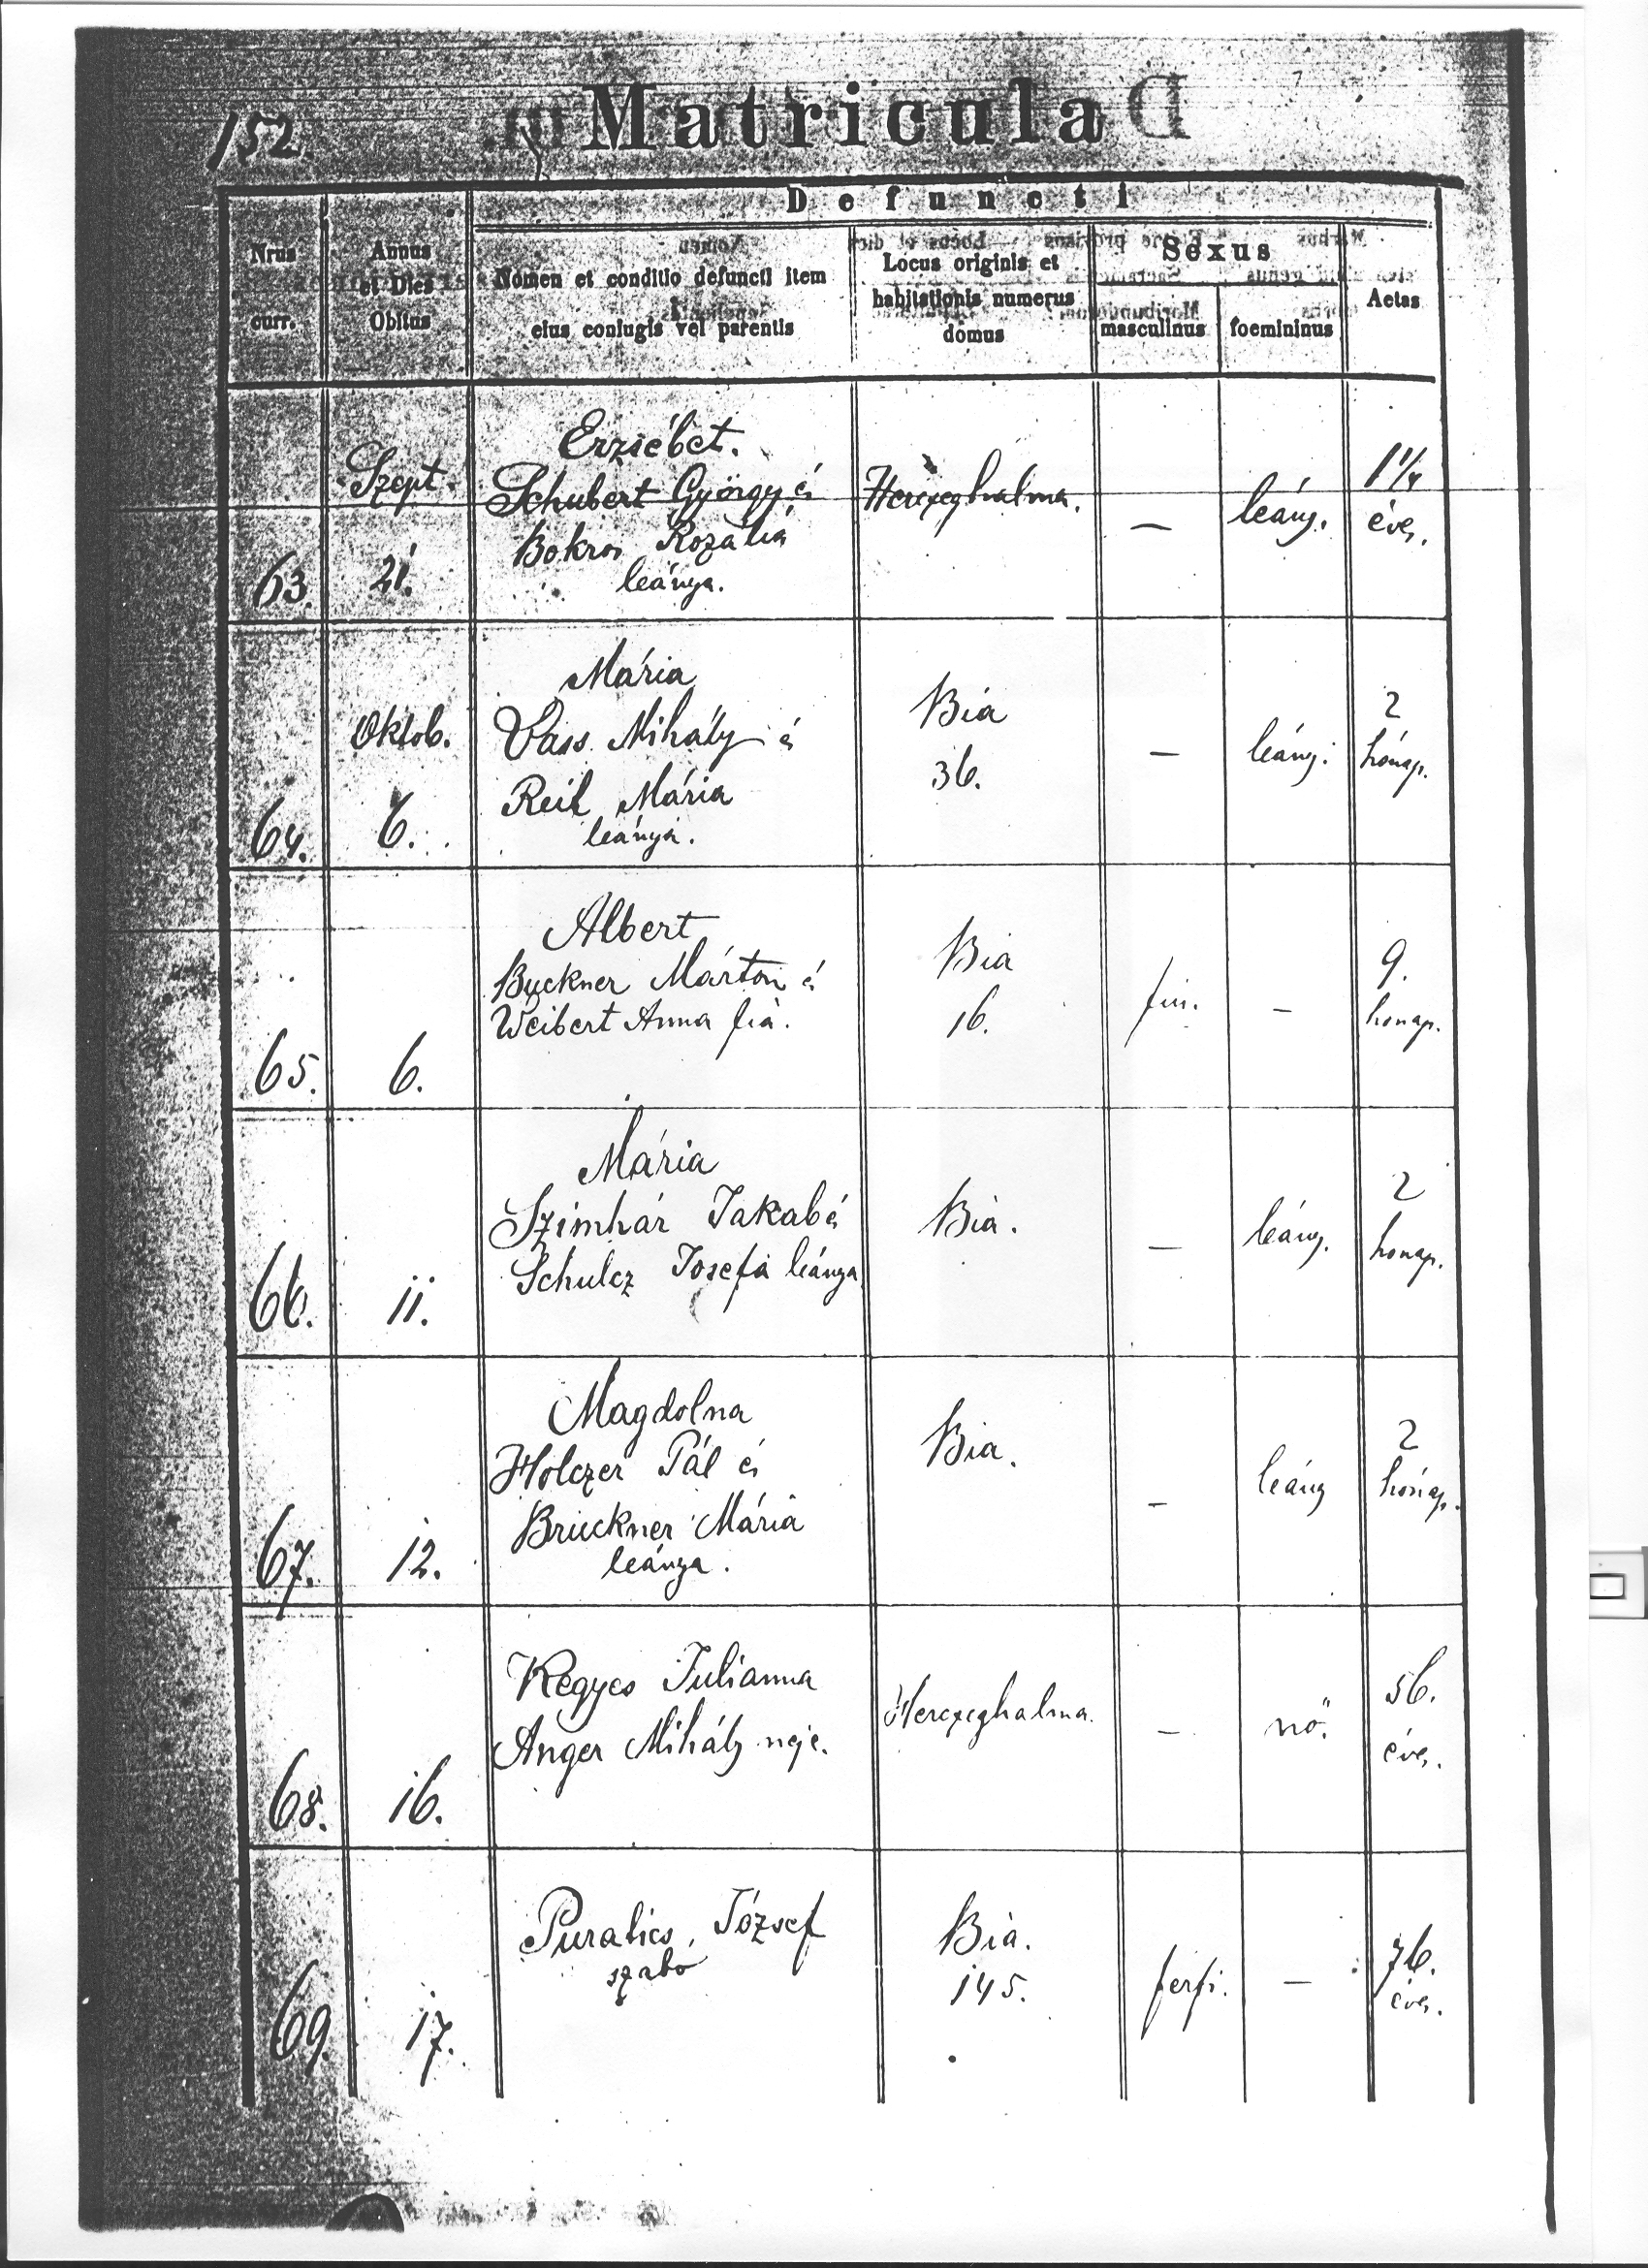 152.
Matricula
Defuncti
Nrus
curr.
Annus
et Dies
Obitus
Nomen et conditio defuncti item
eius coniugis vel parentis
Locus originis et
habitationis numerus
domus
Sexus
masculinus
foemininus
Aetas
63.
Szept.
21.
Erzsébet.
Schubert György és
Bokros Rozália
leánya.
Herczeghalma.
—
leány.
1 1/4
éves.
64.
Oktob.
6.
Mária
Vass Mihály és
Reil Mária
leánya.
Bia
36.
—
leány.
2
hónap.
65.
6.
Albert
Buckner Márton és
Weibert Anna fia.
Bia
16.
fiu.
—
9.
honap.
66.
11.
Mária
Szimhár Jakab és
Schulcz Josefa leánya
Bia.
—
leány.
2
honap.
67.
12.
Magdolna
Holczer Pál és
Bruckner Mária
leánya.
Bia.
—
leány
2
hónap.
68.
16.
Kegyes Julianna
Anger Mihály neje.
Herczeghalma.
—
nő.
56.
éves.
69.
17.
József
szabó
Bia.
145.
ferfi.
—
76.
éves.